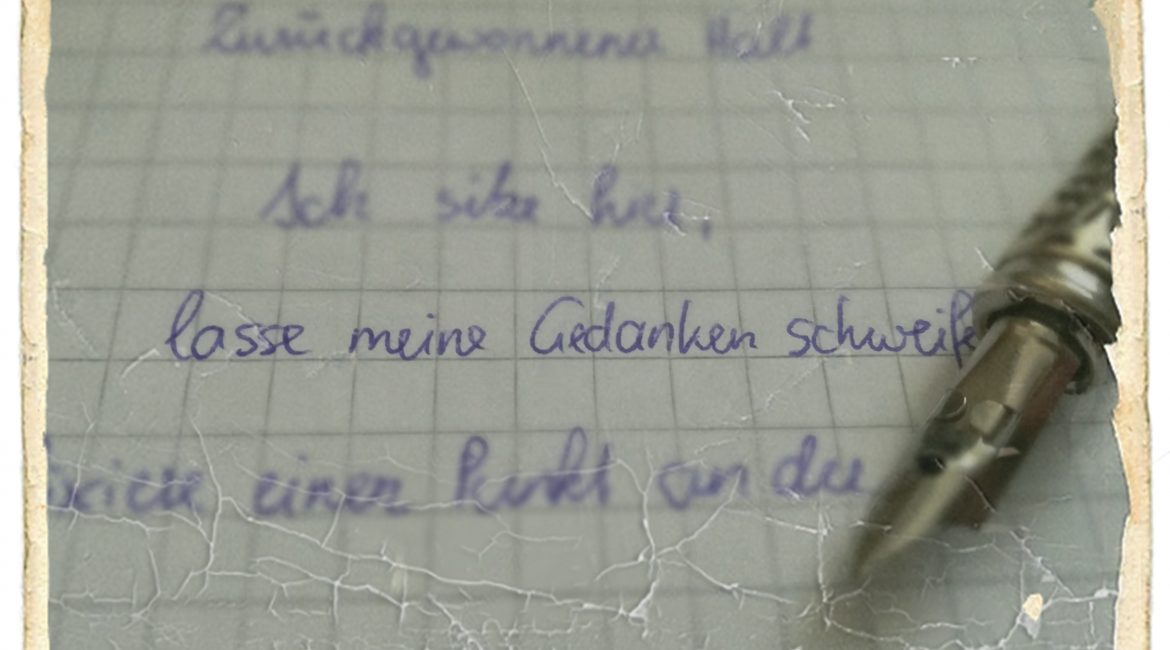 Zurückgewonnener Halt
Ich sitze hier,
lasse meine Gedanken schweife
einen Punkt an der